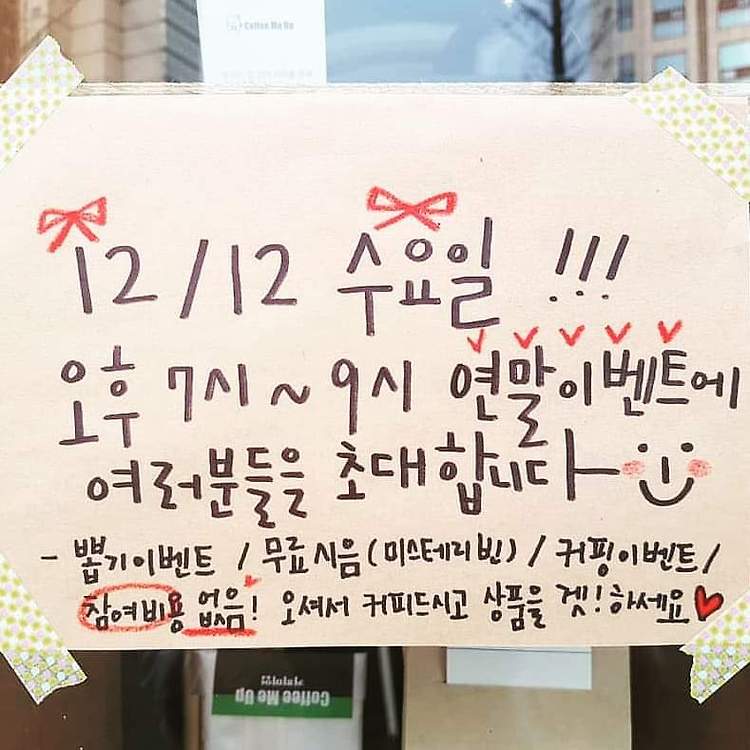 Coffee Me Up
12/12 수요일 !!!
오후 7시~9시 연말이벤트에
여러분들을 초대합니다
- 뽑기이벤트 / 무료시음(미스테리빈) / 커핑이벤트/
참여비용 없음! 오셔서 커피드시고 상품을 겟!하세요
Coffee Me Up